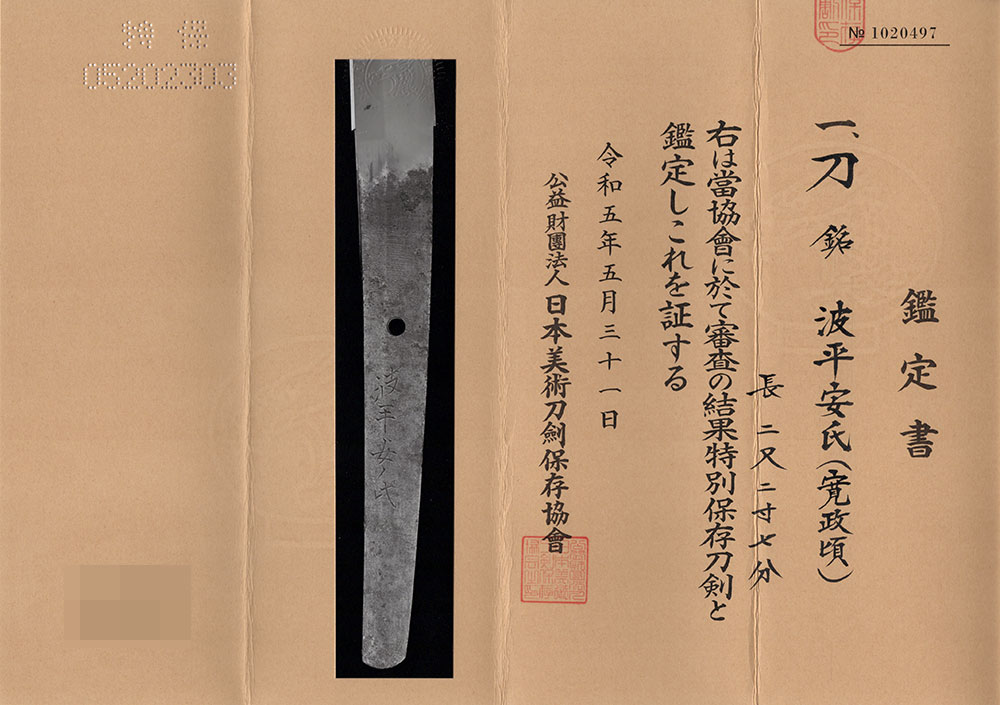 № 1020497
鑑定書
一、刀 銘 波平安氏(寛政頃)
長 二尺二寸七分
右は當協會に於て審査の結果特別保存刀剣と
鑑定しこれを証する
令和五年五月三十一日
公益財團法人 日本美術刀劍保存協會
波平安氏
05202303